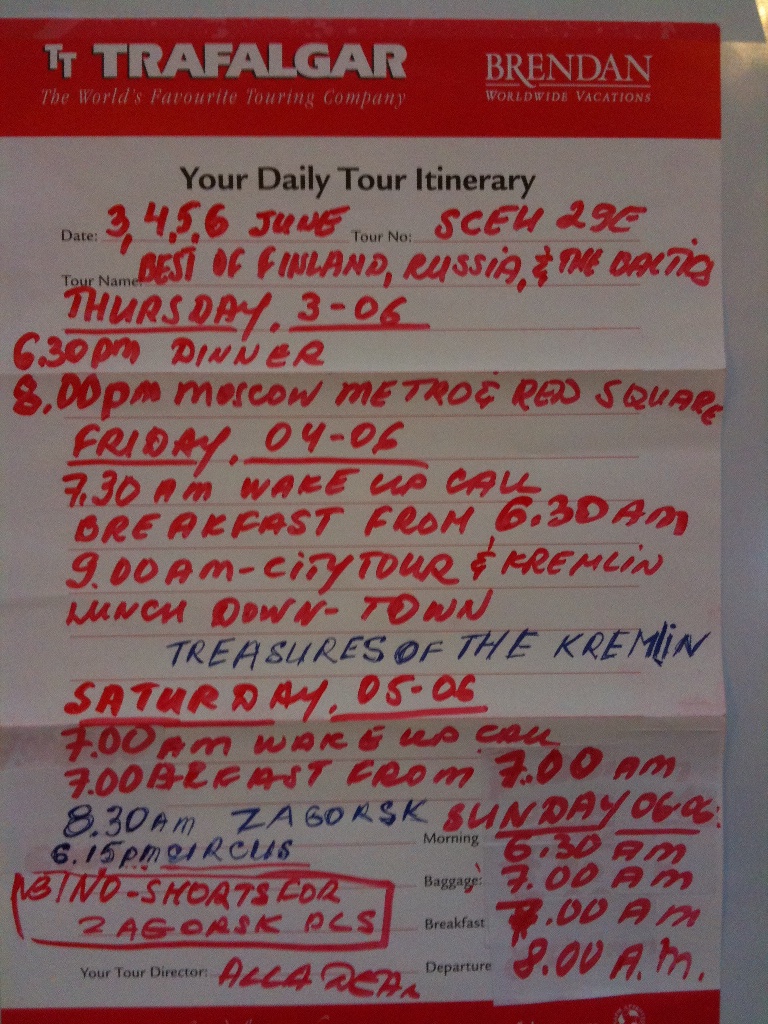 TT TRAFALGAR
The World's Favourite Touring Company
BRENDAN
WORLDWIDE VACATIONS
Your Daily Tour Itinerary
Date: 3,4,5,6 JUNE Tour No: SCEU 29E
Tour Name: BEST OF FINLAND, RUSSIA, & THE BALTICS
THURSDAY, 3-06
6.30pm DINNER
8.00pm MOSCOW METRO & RED SQUARE
FRIDAY, 04-06
7.30 AM WAKE UP CALL
BREAKFAST FROM 6.30 AM
9.00 AM-CITY TOUR & KREMLIN
LUNCH DOWN-TOWN
TREASURES OF THE KREMLIN
SATURDAY, 05-06
7.00 AM WAKE UP CALL
7.00 BRFAST FROM 7.00 AM
8.30 AM ZAGORSK
SUNDAY 06.06.
6.15pm CIRCUS
Morning 6.30 AM
Baggage: 7.00 AM
NO-SHORTS FOR
ZAGORSK PLS
Breakfast 7.00 AM
Departure 8.00 A.M.
Your Tour Director: ALLA